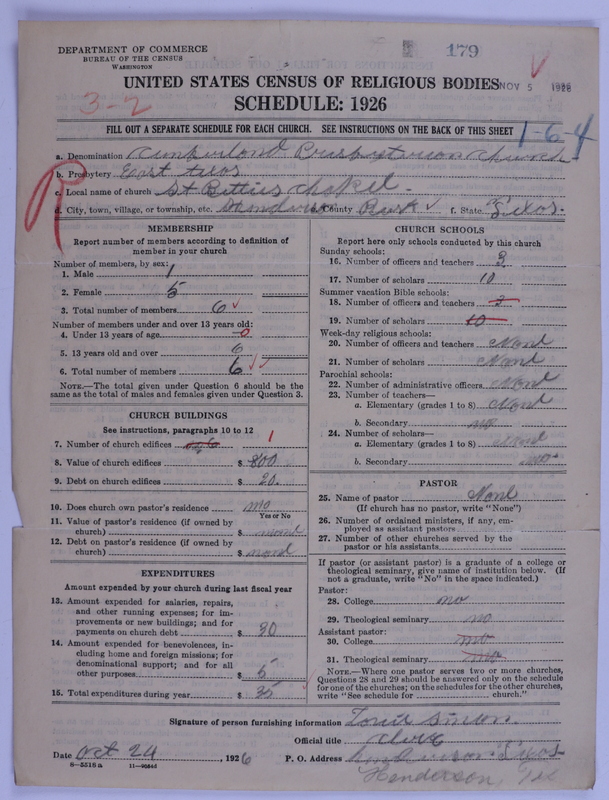 179
DEPARTMENT OF COMMERCE
BUREAU OF THE CENSUS
WASHINGTON
UNITED STATES CENSUS OF RELIGIOUS BODIES
NOV 5 1926
3-2
SCHEDULE: 1926
FILL OUT A SEPARATE SCHEDULE FOR EACH CHURCH. SEE INSTRUCTIONS ON THE BACK OF THIS SHEET
1-6-4
a. Denomination Cumberlond Presbyterion Church
b. Presbytery East
c. Local name of church St Betties
d. City, town, village, or township, etc. County Rusk f. State
R
MEMBERSHIP
Report number of members according to definition of member in your church
Number of members, by sex:
1. Male 1
2. Female 5
3. Total number of members 6
Number of members under and over 13 years old:
4. Under 13 years of age 0
5. 13 years old and over 6
6. Total number of members 6
NOTE.—The total given under Question 6 should be the same as the total of males and females given under Question 3.
CHURCH BUILDINGS
See instructions, paragraphs 10 to 12
7. Number of church edifices 1
8. Value of church edifices $ 800
9. Debt on church edifices $ 20
10. Does church own pastor's residence no
Yes or No
11. Value of pastor's residence (if owned by church) $ none
12. Debt on pastor's residence (if owned by church) $ none
EXPENDITURES
Amount expended by your church during last fiscal year
13. Amount expended for salaries, repairs, and other running expenses; for improvements or new buildings; and for payments on church debt $ 30
14. Amount expended for benevolences, including home and foreign missions; for denominational support; and for all other purposes $ 5
15. Total expenditures during year $ 35
CHURCH SCHOOLS
Report here only schools conducted by this church
Sunday schools:
16. Number of officers and teachers 3
17. Number of scholars 10
Summer vacation Bible schools:
18. Number of officers and teachers 3
19. Number of scholars 10
Week-day religious schools:
20. Number of officers and teachers None
21. Number of scholars None
Parochial schools:
22. Number of administrative officers None
23. Number of teachers—
a. Elementary (grades 1 to 8) None
b. Secondary no
24. Number of scholars—
a. Elementary (grades 1 to 8) None
b. Secondary no
PASTOR
25. Name of pastor None
(If church has no pastor, write "None")
26. Number of ordained ministers, if any, employed as assistant pastors
27. Number of other churches served by the pastor or his assistants
If pastor (or assistant pastor) is a graduate of a college or theological seminary, give name of institution below. (If not a graduate, write "No" in the space indicated.)
Pastor:
28. College no
29. Theological seminary no
Assistant pastor:
30. College no
31. Theological seminary no
NOTE.—Where one pastor serves two or more churches, Questions 28 and 29 should be answered only on the schedule for one of the churches; on the schedules for the other churches, write "See schedule for church."
Signature of person furnishing information
Official title
Date Oct 24, 1926
P. O. Address
8-5516 a
Henderson, Tex